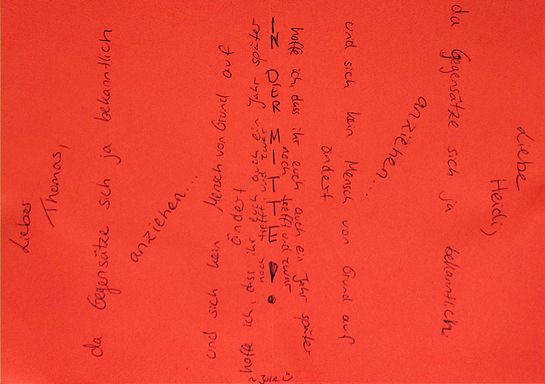 Lieber
Thomas,
da Gegensätze sich ja bekanntlich
anziehen...
und sich kein Mensch von Grund auf
ändert
hoffe ich, dass ihr euch auch ein Jahr später
noch trefft und zwar
IN DER MITTE!
Liebe
Heidi,
da Gegensätze sich ja bekanntlich
anziehen...
und sich kein Mensch von Grund auf
ändert
hoffe ich, dass ihr euch auch ein Jahr später
noch trefft und zwar